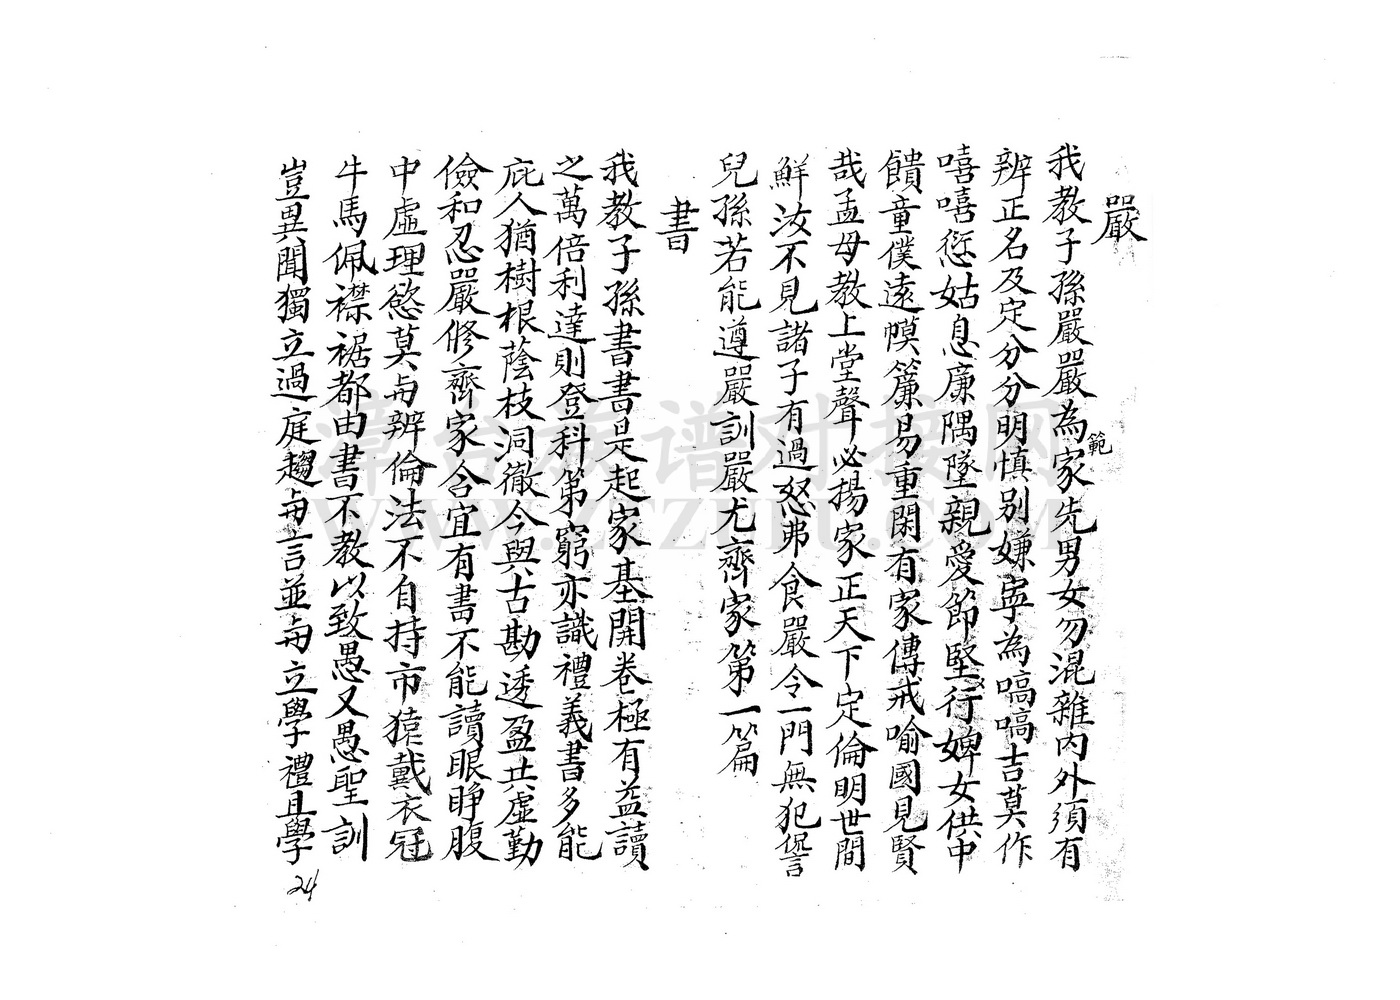 嚴
我教子孫嚴嚴為家範先男女勿混雜內外須有
辨正名及定分分明慎別嫌寧為嗃嗃吉莫作
嘻嘻愆姑息廉隅墜親愛節堅行婢女供中
饋童僕遠幙簾易重閑有家傳戒喻國見賢
哉孟母教上堂聲必揚家正天下定倫明世間
鮮汝不見諸子有過怒弗食嚴令一門無犯諐
兒孫若能遵嚴訓嚴尤齊家第一篇
書
我教子孫書書是起家基開卷極有益讀
之萬倍利達則登科第窮亦識禮義書多能
庇人猶樹根蔭枝洞徹今與古勘透盈共虛勤
儉和忍嚴修齊家合宜有書不能讀眼睜腹
中虛理慾莫与辨倫法不自持市猿戴衣冠
牛馬佩襟裾都由書不教以致愚又愚聖訓
豈異聞獨立過庭趨与言並与立學禮且學
24
漳台族谱对接网